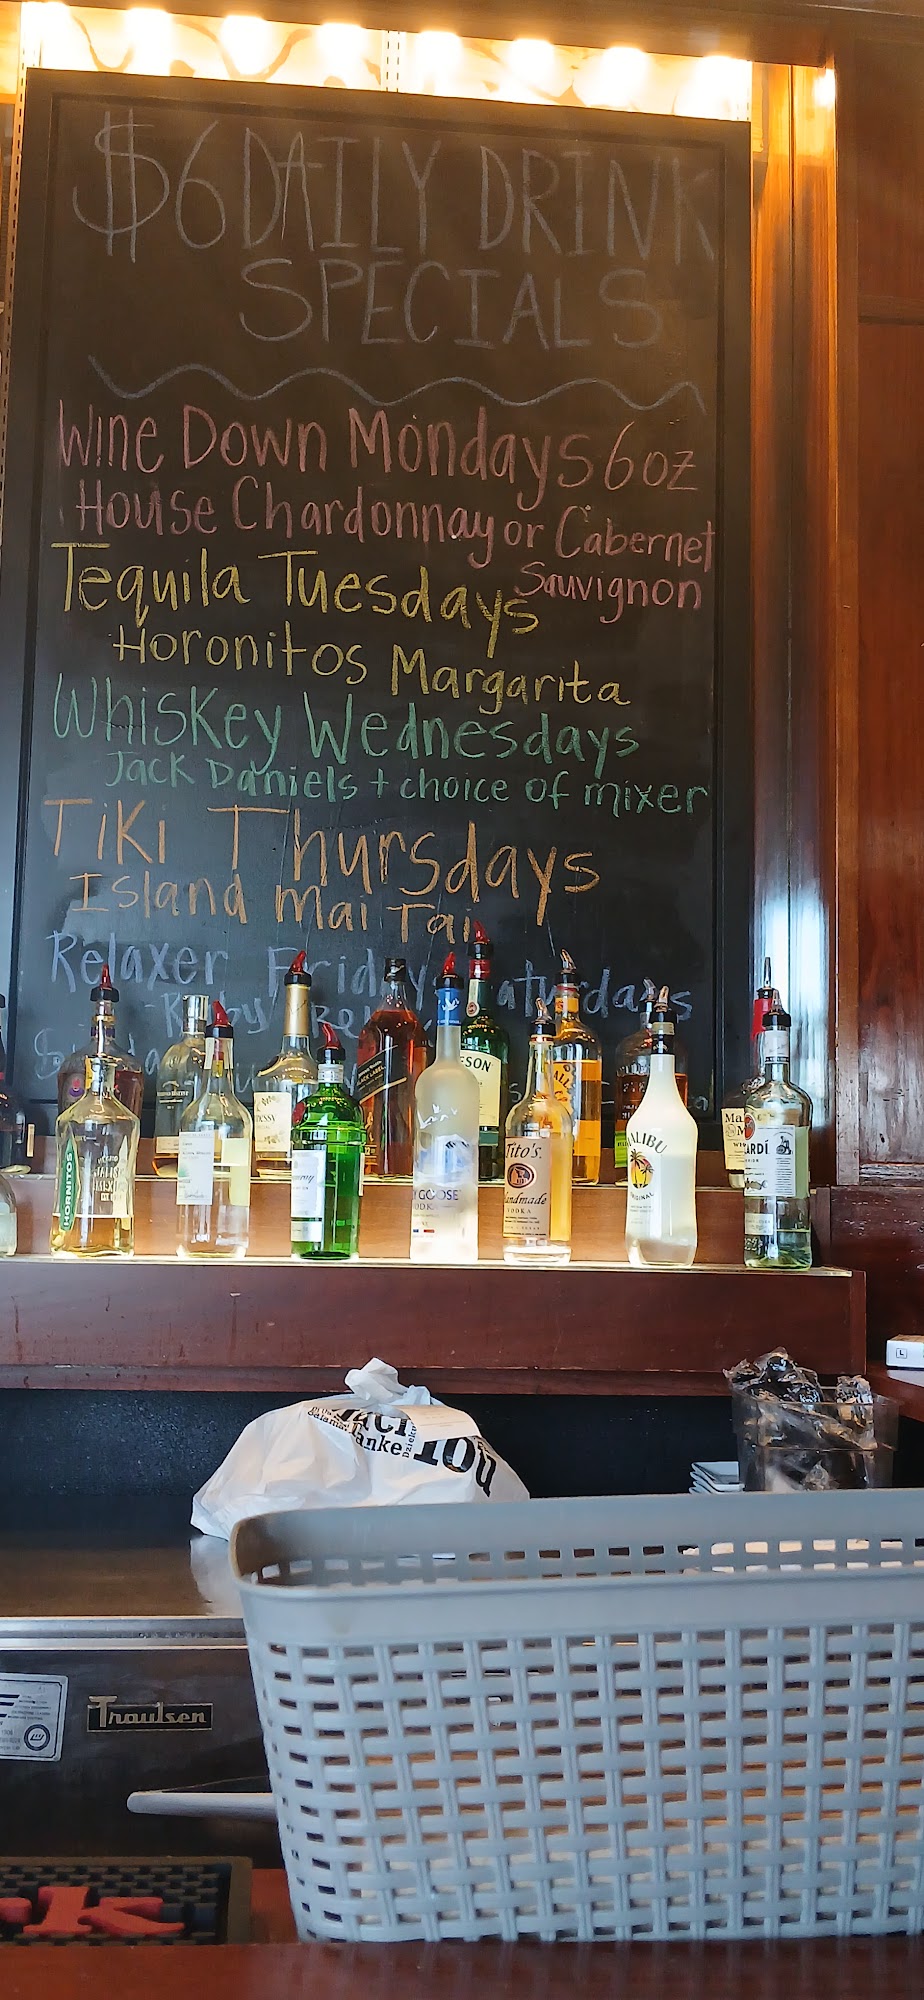 $6 DAILY DRINK
SPECIALS
Wine Down Mondays 6oz
House Chardonnay or Cabernet
Sauvignon
Tequila Tuesdays
Horonitos Margarita
Whiskey Wednesdays
Jack Daniels + choice of mixer
Tiki Thursdays
Island Mai Tai
Relaxer Friday
HORNITOS
GOOSE
VODKA
Tito's
Handmade
VODKA
MALIBU
ORIGINAL
Danke
10U
Traulsen